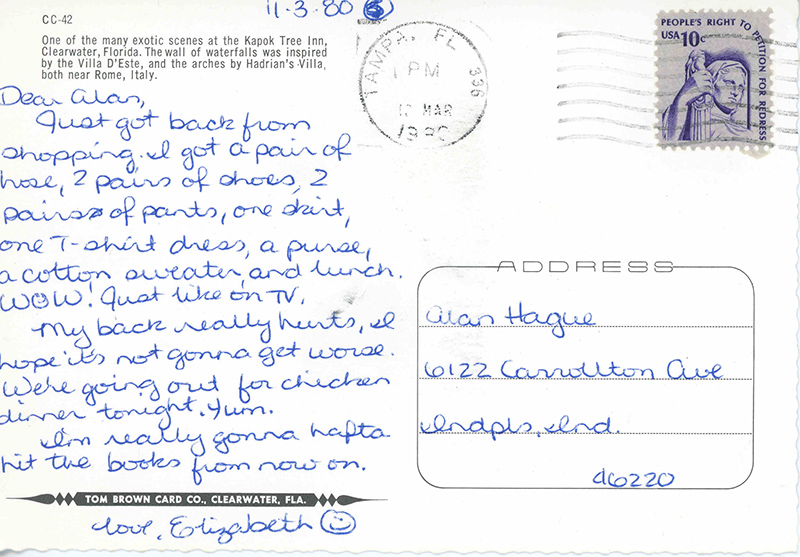 11-3-80 5
CC-42
One of the many exotic scenes at the Kapok Tree Inn,
Clearwater, Florida. The wall of waterfalls was inspired
by the Villa D'Este, and the arches by Hadrian's Villa,
both near Rome, Italy.
Dear Alan,
Just got back from
shopping. I got a pair of
hose, 2 pairs of shoes, 2
pairs of pants, one skirt,
one T-shirt dress, a purse,
a cotton sweater, and lunch.
WOW! Just like on TV.
My back really hurts, I
hope it's not gonna get worse.
We're going out for chicken
dinner tonight. Yum.
I'm really gonna hafta
hit the books from now on.
TOM BROWN CARD CO., CLEARWATER, FLA.
love, Elizabeth
TAMPA, FL 336
PM
12 MAR
1980
PEOPLE'S RIGHT TO PETITION FOR REDRESS
USA 10c
ADDRESS
Alan Hague
6122 Carrollton Ave
Indpls, Ind.
46220